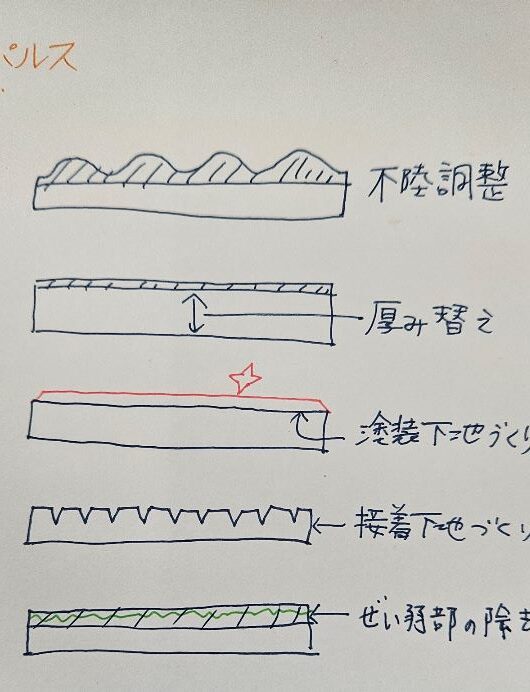 パルス
不陸調整
厚み替え
塗装下地づくり
接着下地づくり
ぜい弱部の除去